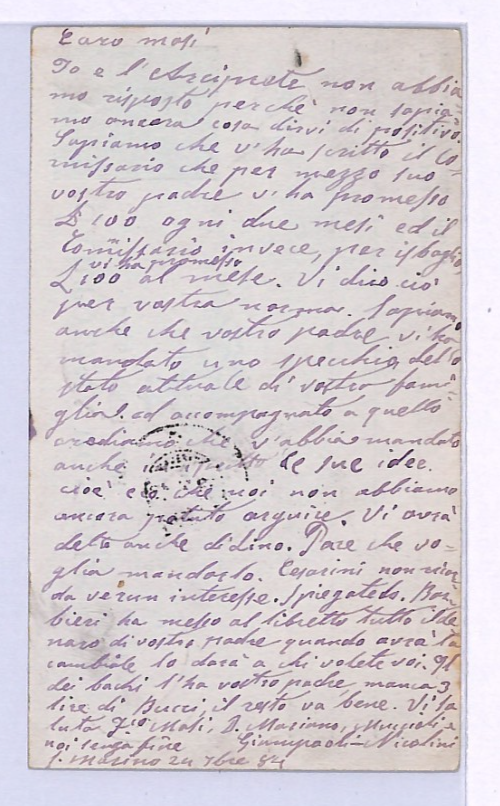 Caro Masi
Io e l'Arciprete non abbia-
mo risposto perchè non sapia-
mo ancora cosa dirvi di positivo.
Sapiamo che v'ha scritto il Co-
missario che per mezzo suo
vostro padre v'ha promesso
£ 100 ogni due mesi ed il
Comissario invece, per isbaglio,
vi ha promesso
£100 al mese. Vi dico ciò
per vostra norma. Sapiamo
anche che vostro padre v'ha
mandato uno specchio dello
stato attuale di vostra fami-
glia ed accompagnato a quello
crediamo che v'abbia mandato
anche le sue idee.
cioè che noi non abbiamo
ancora potuto arguire. Vi avrà
detto anche di dino. Pare che vo-
glia mandarlo. Cesarini non ricor-
da verun interesse. Spiegatelo. Bar-
bieri ha messo al libretto tutto il de-
naro di vostro padre quando avrà la
cambiale lo darà a chi volete voi. Il
dei bachi l'ha vostro padre manca 3
lire di Bucci, il resto va bene. Vi sa-
luta Masi, D. Marsano, e
noi senza fine Giampaoli-Nicolini
S. Marino 24 7bre 84